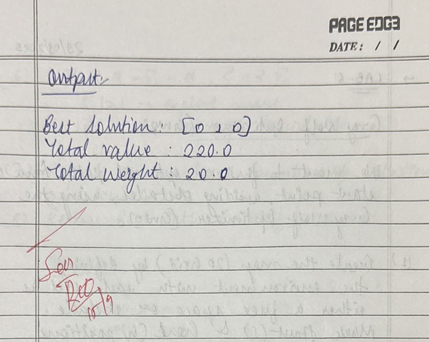 PAGE EDG3
DATE: / /
Output:-
Best solution : [0, 0]
Total value : 220.0
Total Weight : 20.0